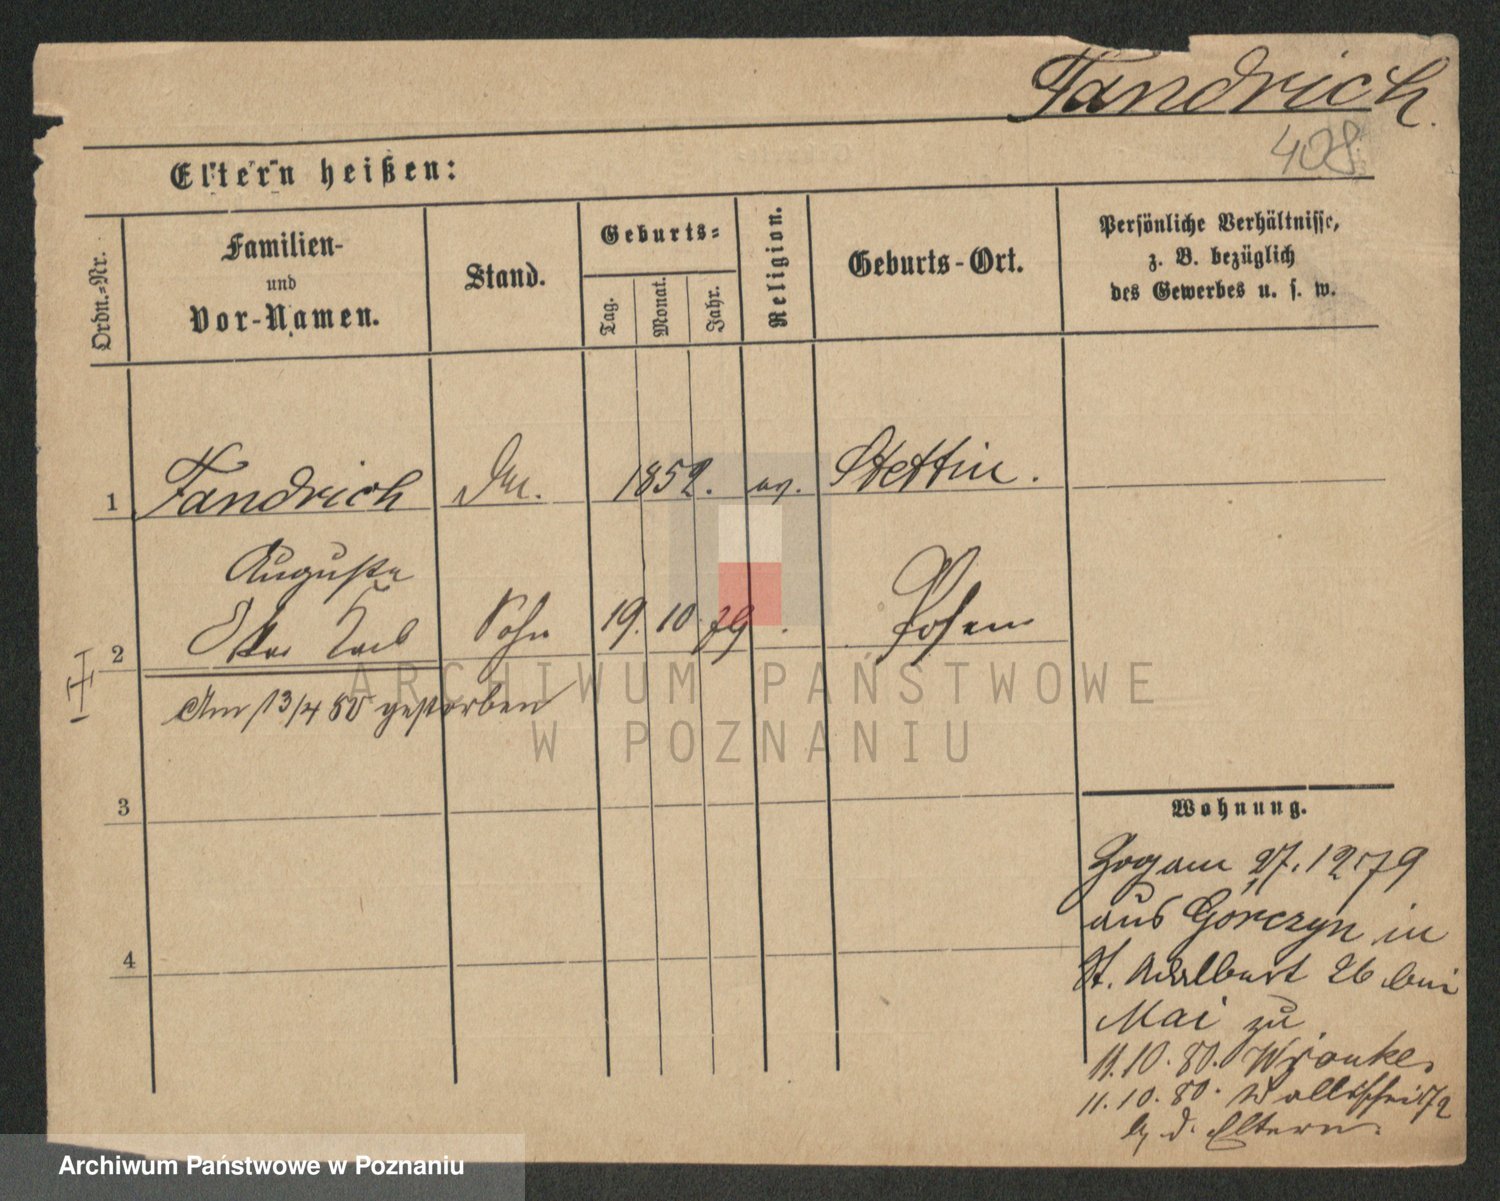 Fandrich.
408
Eltern heißen:
Ordn.=Nr.
Familien-
und
Vor-Namen.
Stand.
Geburts=
Tag.
Monat.
Jahr.
Religion.
Geburts-Ort.
Persönliche Verhältnisse,
z. B. bezüglich
des Gewerbes u. s. w.
1 Fandrich 1852. ev. Stettin.
Auguste
2 Sohn 19. 10 79. Posen
Am 13/4 80 gestorben
3
4
Wohnung.
Zog am 27. 12 79
aus Górczyn in
St. Adalbert 26 bei
Mai zu
11. 10. 80. Wronke.
11. 10. 80. Wallischei 72
b. d. Eltern.
ARCHIWUM PAŃSTWOWE
W POZNANIU
Archiwum Państwowe w Poznaniu